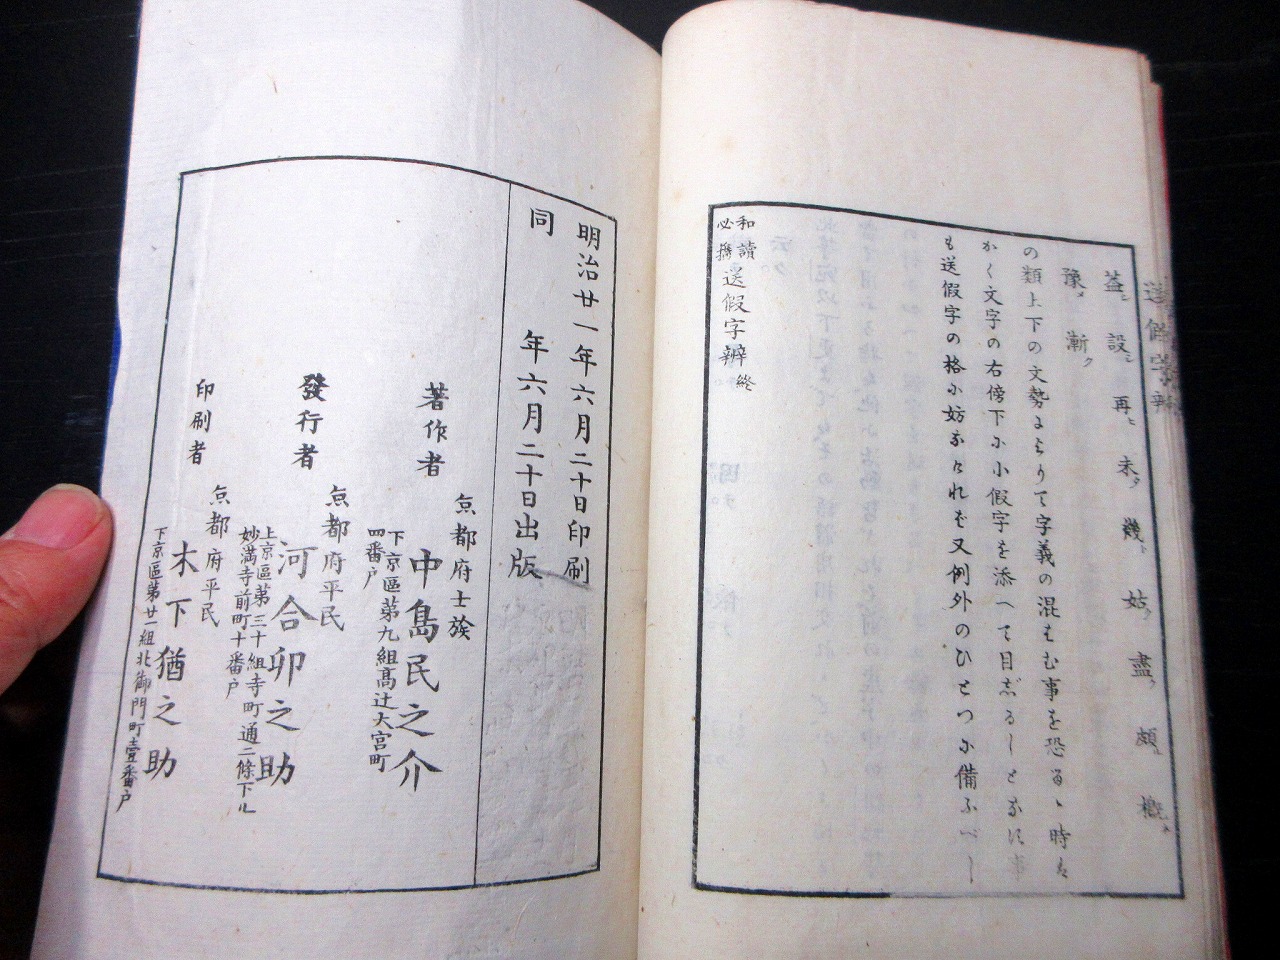 送假字辨
蓋ニ 設ニ 再ニ 未タ 幾 姑ク 盡ク 頗ル 概
豫メ 漸ク
の類上下の文勢によりて字義の混むむ事を恐るゝ時は
かく文字の右傍下に小假字を添へて目志るしとなす事
も送假字の格に妨なけれど又例外のひとつに備ふべし
和讀
必携
送假字辨終
明治廿一年六月二十日印刷
同 年六月二十日出版
著作者
京都府士族
中島民之介
下京區第九組髙辻大宮町
四番戸
發行者
京都府平民
河合卯之助
上京區第三十組寺町通二條下ル
妙滿寺前町十番戸
印刷者
京都府平民
木下猶之助
下京區第廿一組北御門町壹番戸